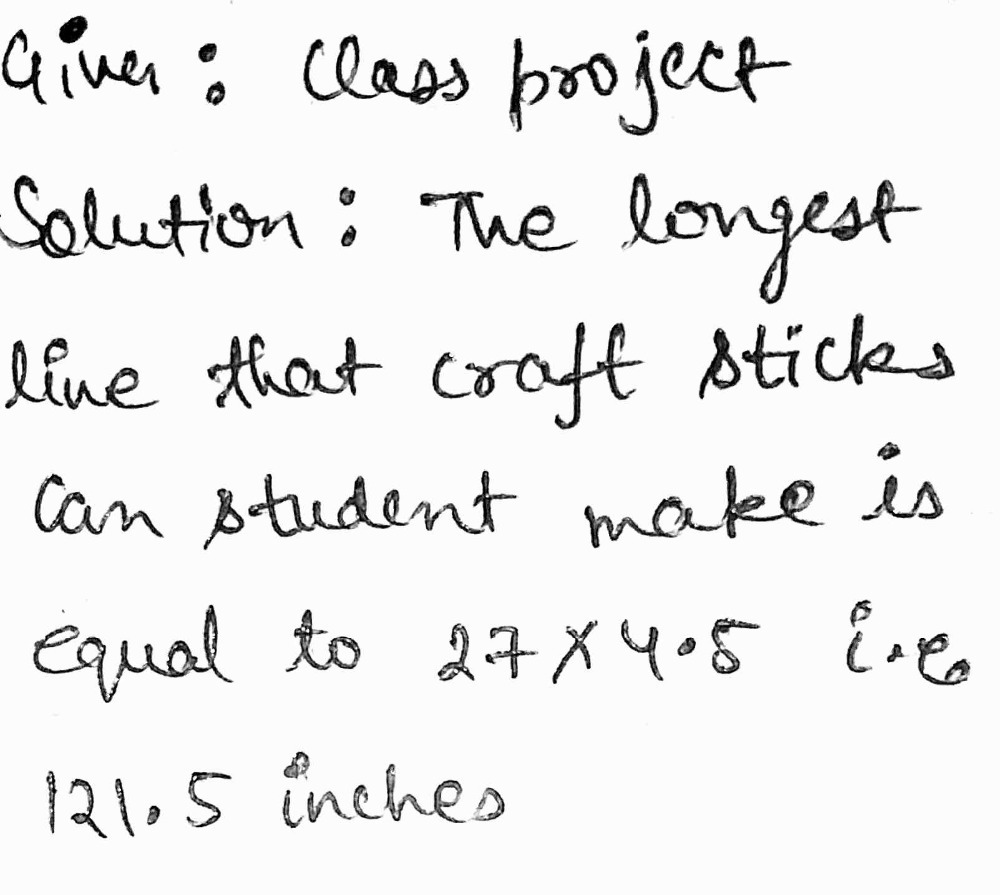 Given : Class project
Solution : The longest
line that craft sticks
can student make is
equal to 27 X 4.5 i.e.
121.5 inches